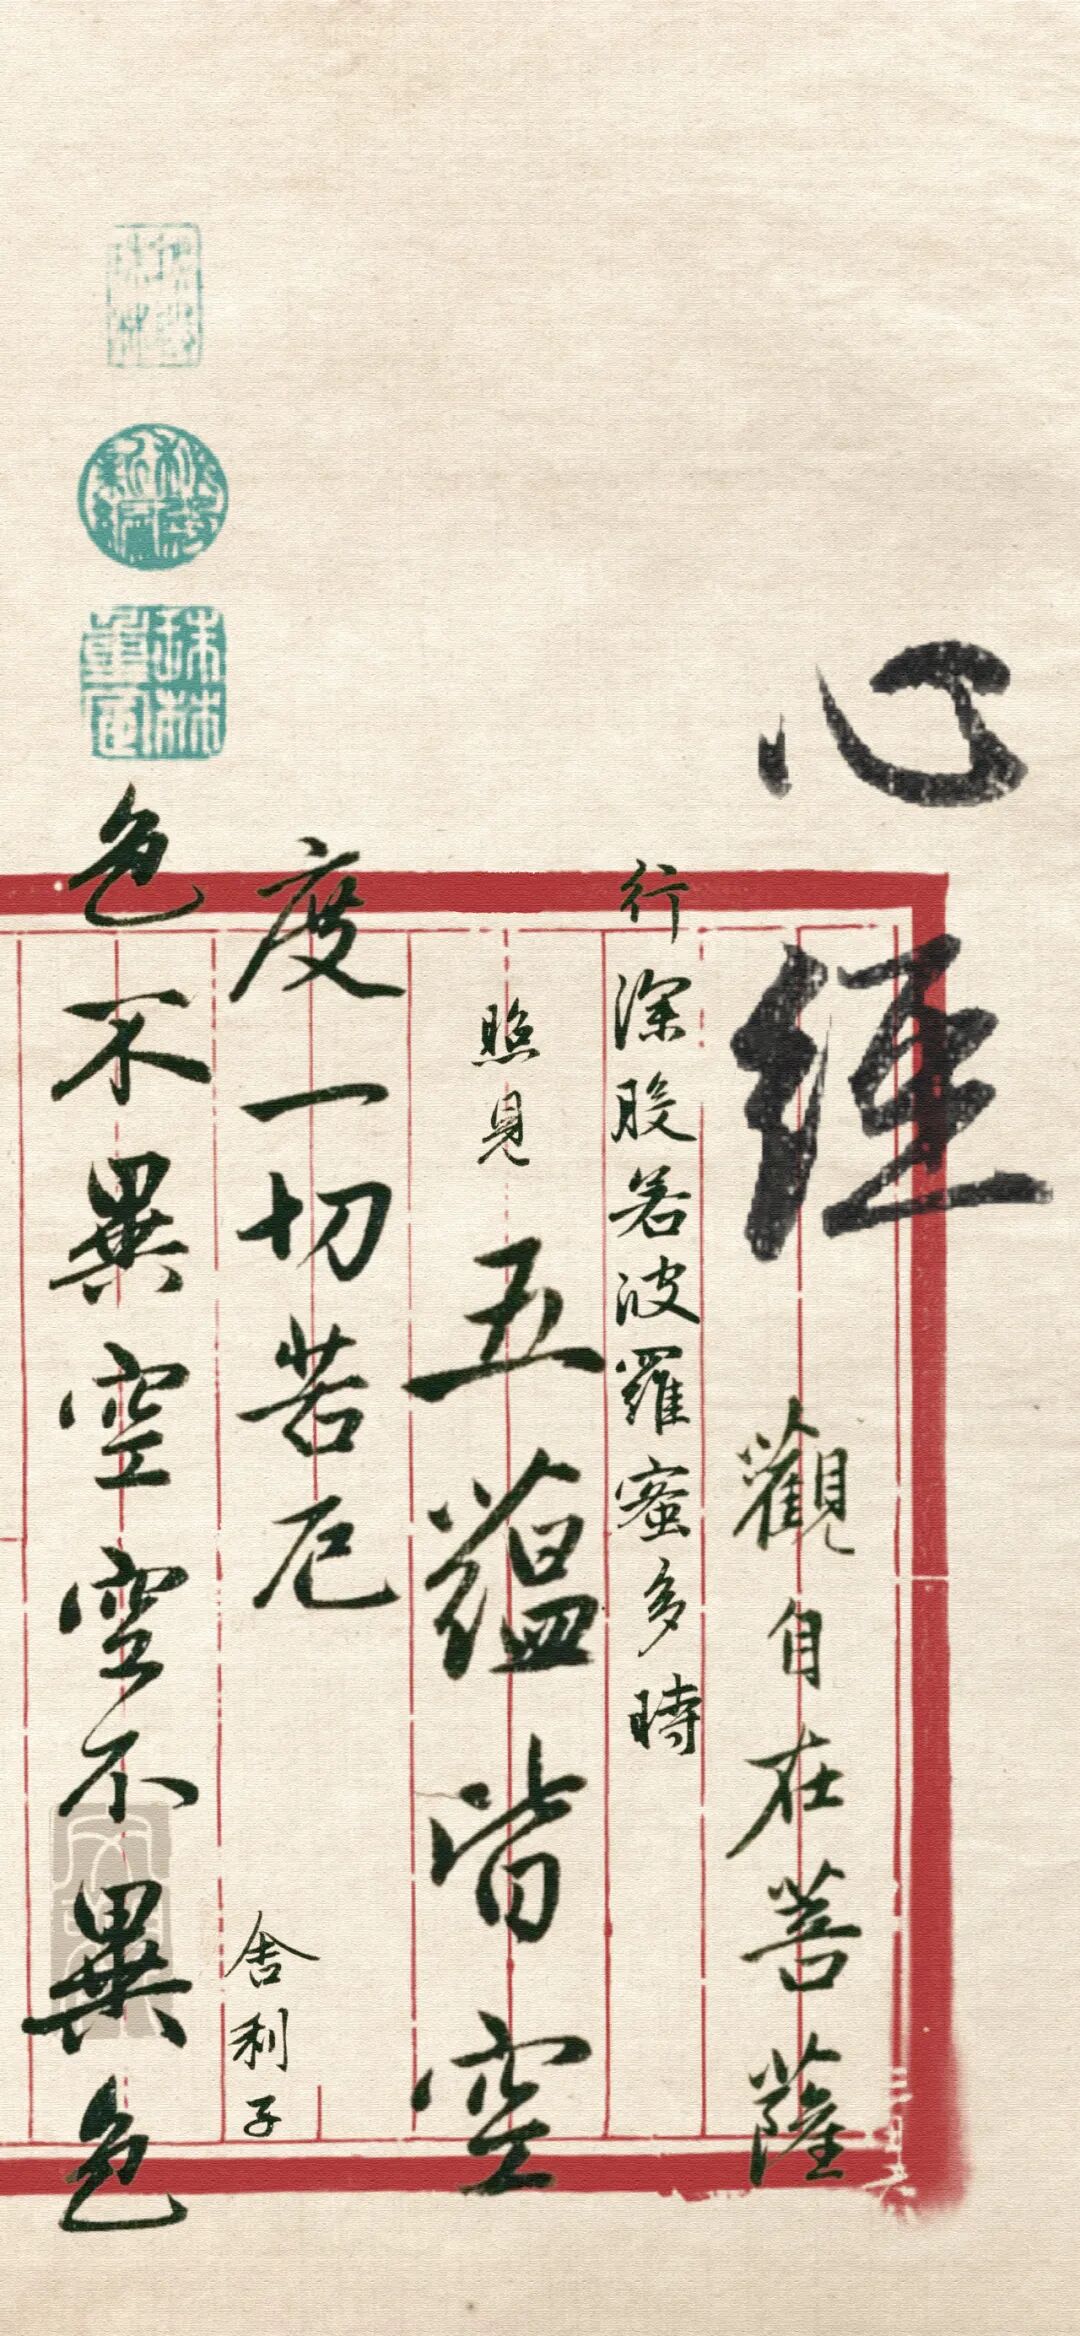 心經
觀自在菩薩
行深般若波羅蜜多時
照見五蘊皆空
度一切苦厄
舍利子
色不異空空不異色
珠林重定